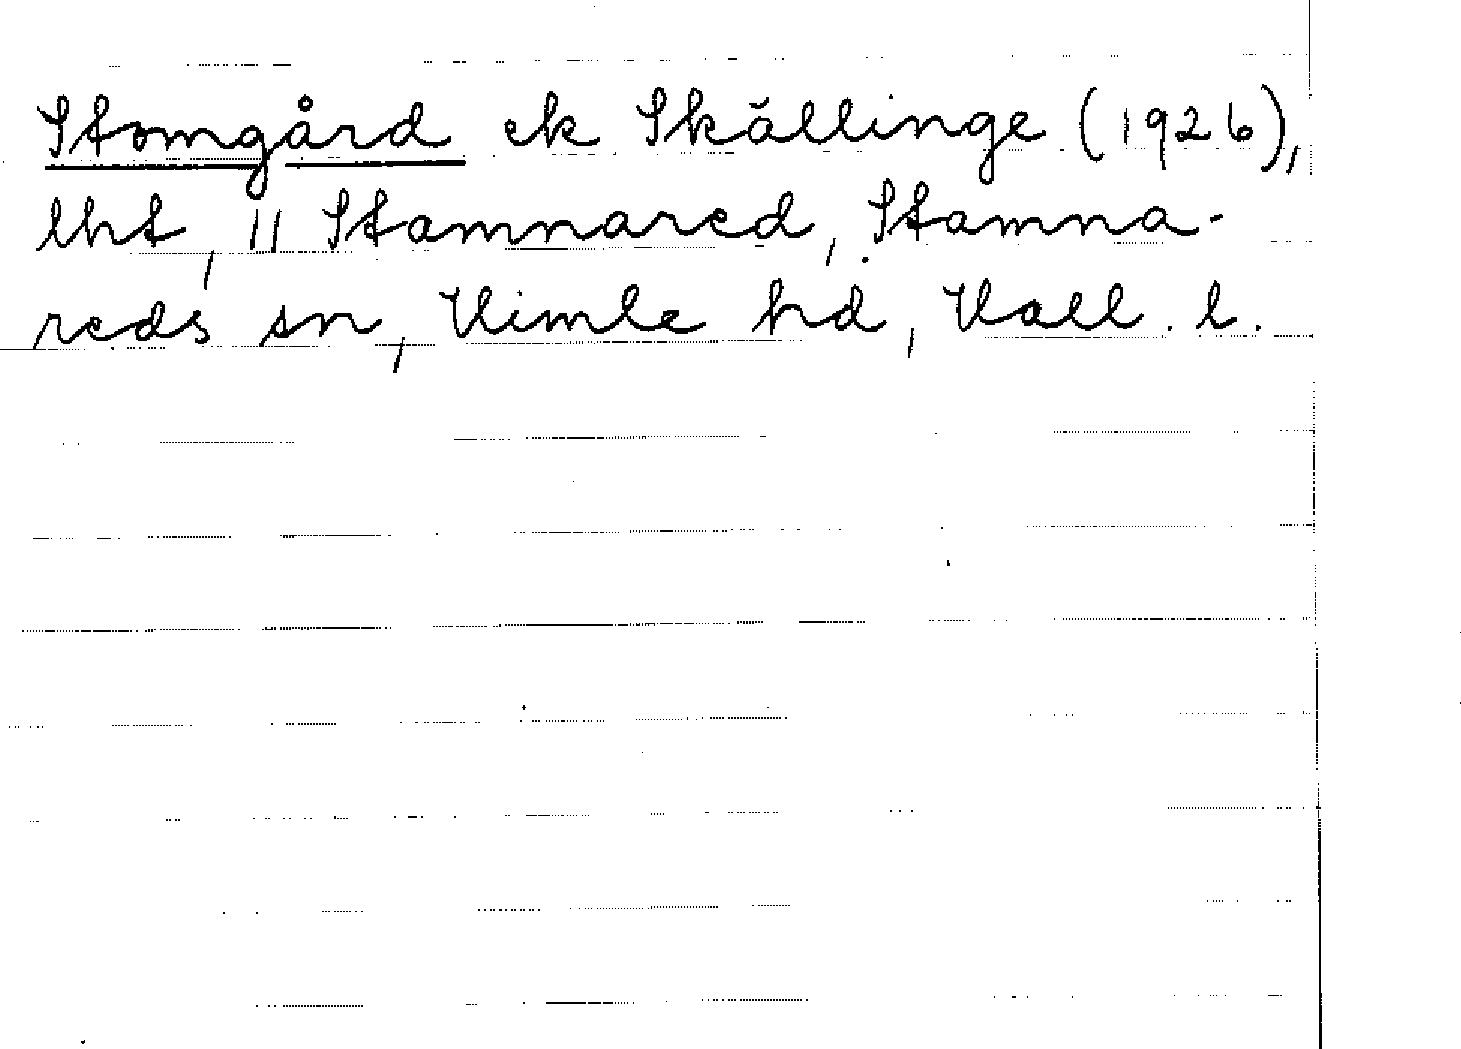 Stomgård ek Skällinge (1926),
lht, // Stamnared, Stamna-
reds sn, Vimle hd, Hall. l.